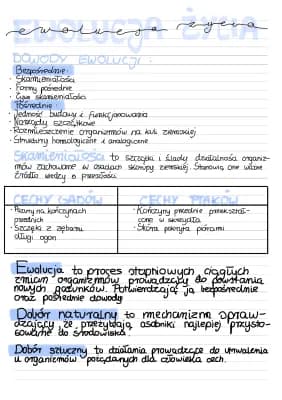 EWOLUCJA ŻYCIA
ewolucja życia
DOWODY EWOLUCJI:
Bezpośrednie:
· Skamieniałości
· Formy pośrednie
· Żywe skamieniałości
Pośrednie:
· Jedność budowy i funkcjonowania
· Narządy szczątkowe
· Rozmieszczenie organizmów na kuli ziemskiej
· Struktury homologiczne i analogiczne
Skamieniałości to szczątki i ślady działalności organiz-
mów zachowane w osadach skorupy ziemskiej. Stanowią one ważne
źródła wiedzy o przeszłości.
CECHY GADÓW
· Pazury na kończynach
przednich
· Szczęki z zębami
długi ogon
CECHY PTAKÓW
· Kończyny przednie przekształ-
cone w skrzydła
· Skóra pokryta piórami
Ewolucja to proces stopniowych ciągłych
zmian organizmów prowadzący do powstania
nowych gatunków. Potwierdzają ją bezpośrednie
oraz pośrednie dowody
Dobór naturalny to mechanizm spraw-
dzający, że przeżywają osobniki najlepiej przysto-
sowane do środowiska.
Dobór sztuczny to działania prowadzące do utrwalenia
u organizmów pożądanych dla człowieka cech.